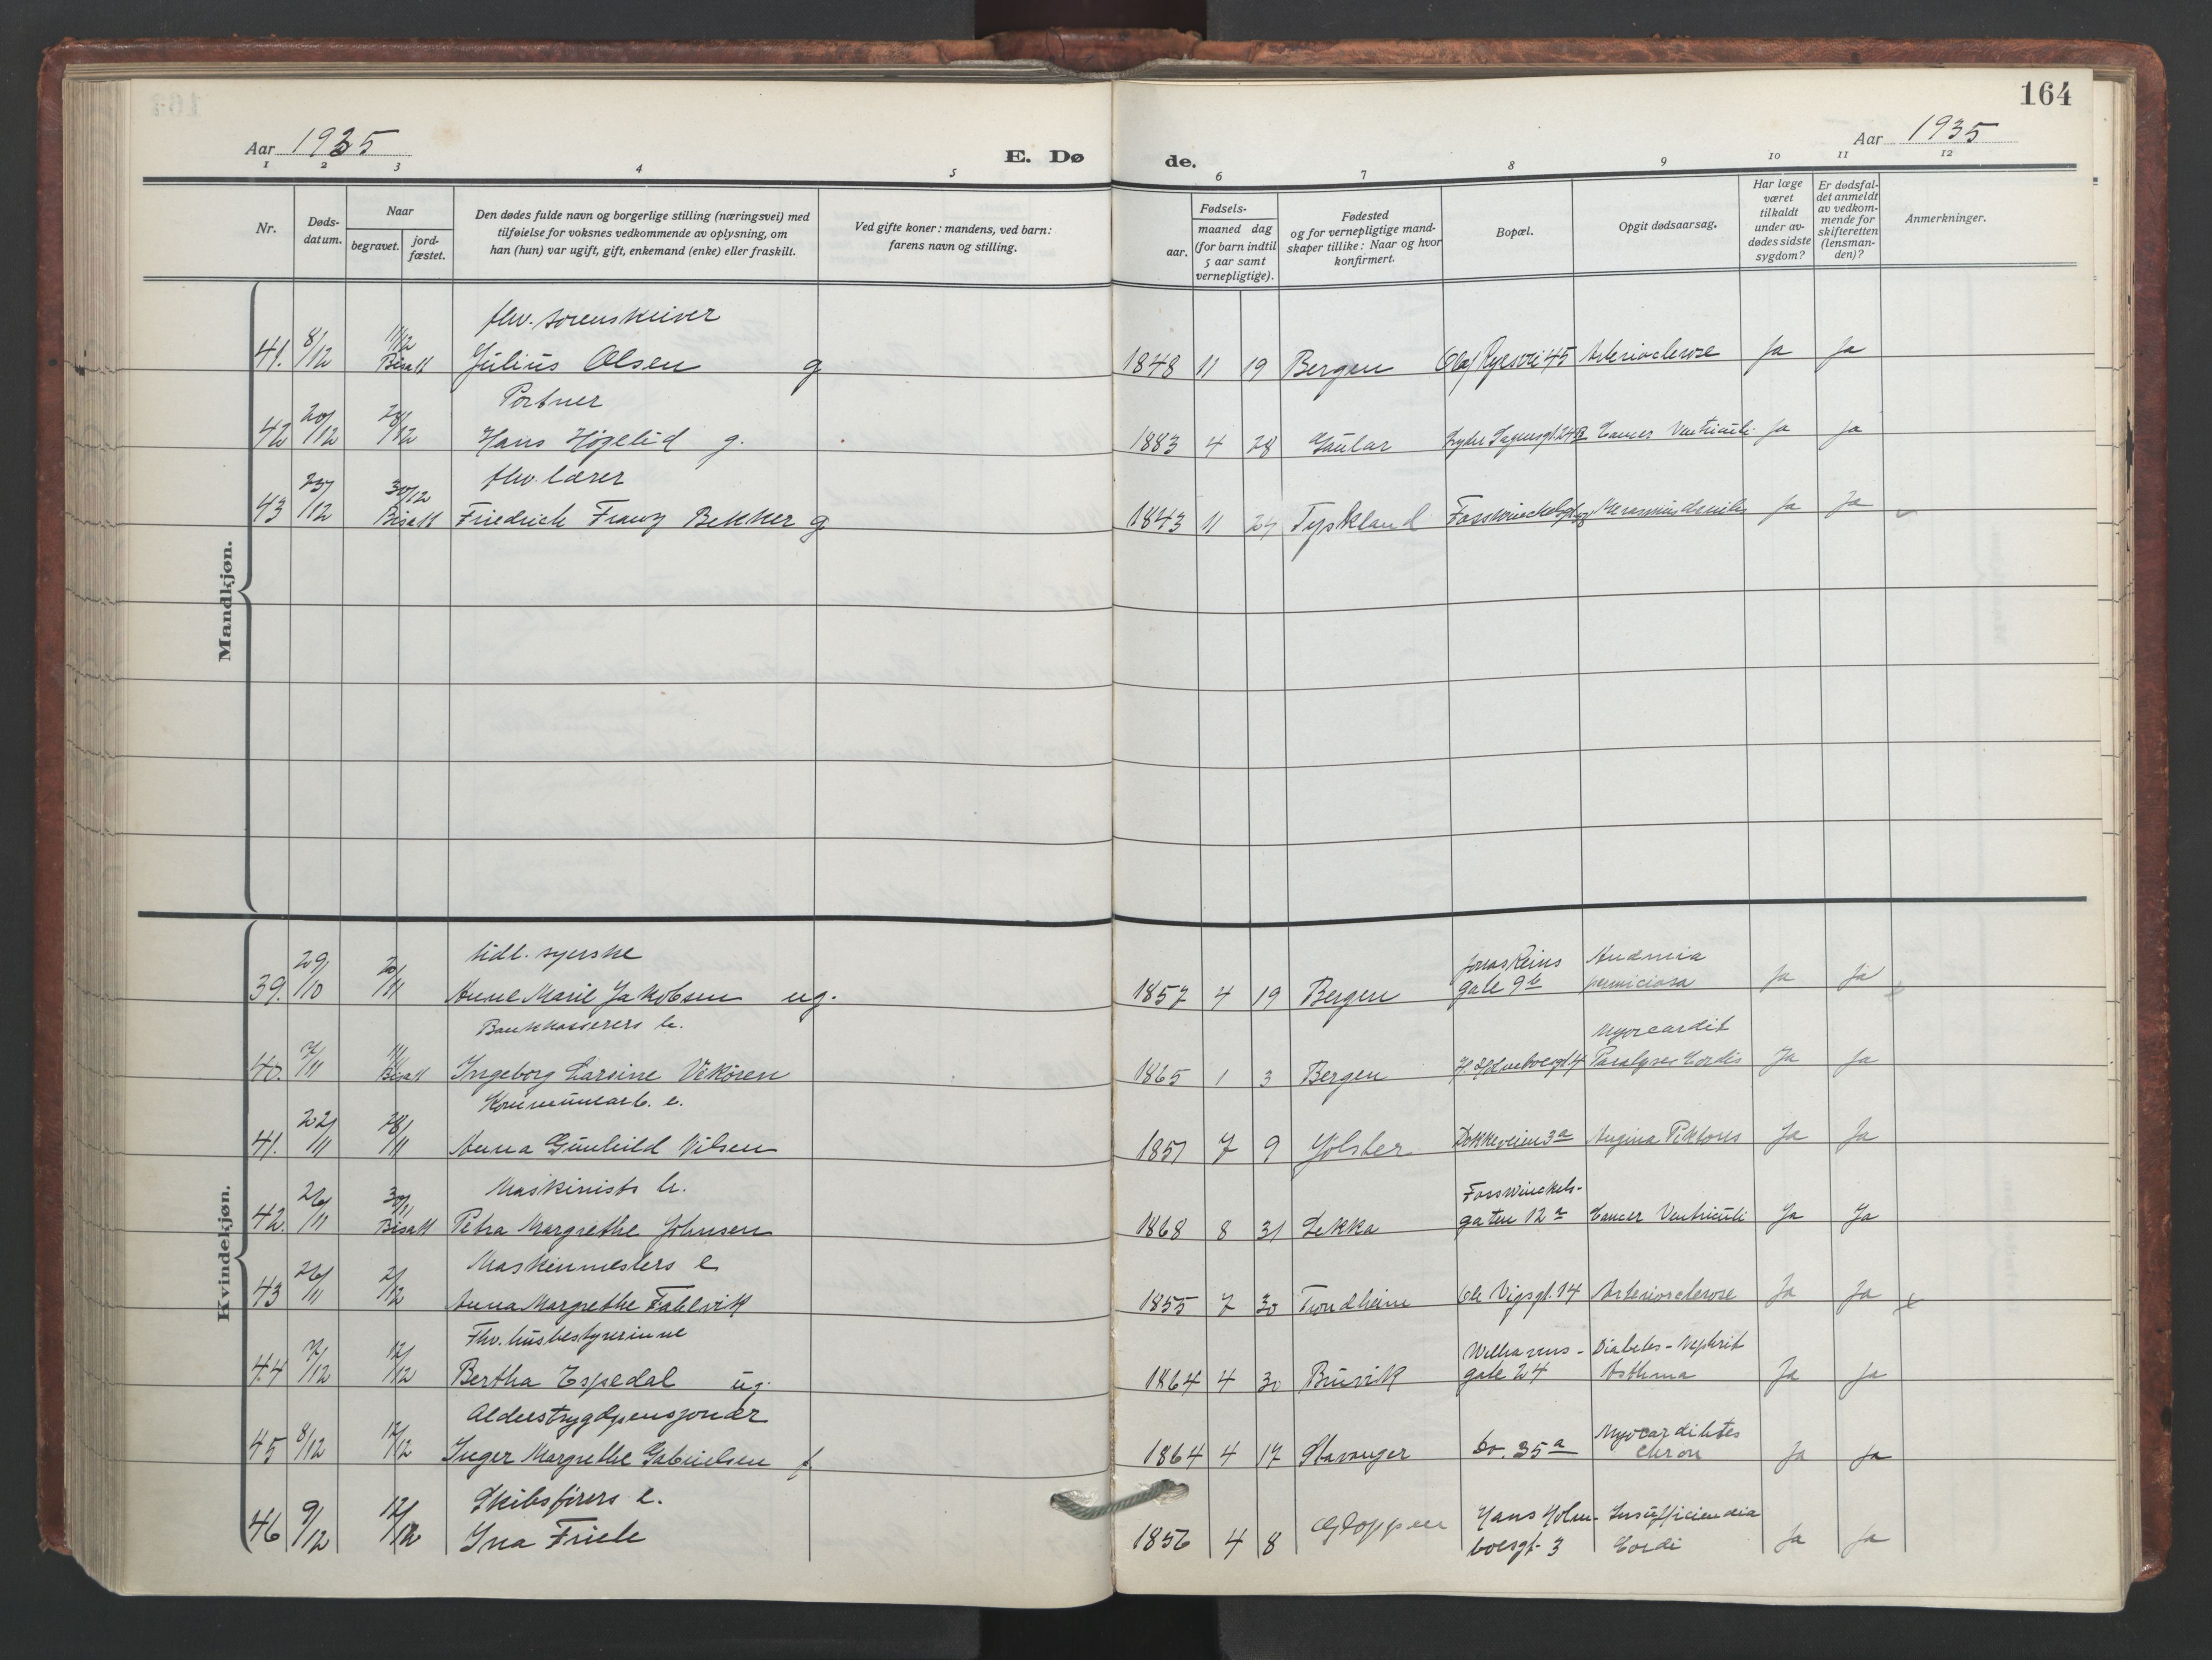 164
Aar 1935
E. Døde.
Aar 1935
1 2 3 4 5 6 7 8 9 10 11 12
Nr.
Døds-
datum.
Naar
begravet.
jord-
fæstet.
Den dødes fulde navn og borgerlige stilling (næringsvei) med
tilføielse for voksnes vedkommende av oplysning, om
han (hun) var ugift, gift, enkemand (enke) eller fraskilt.
Ved gifte koner: mandens, ved barn:
farens navn og stilling.
Fødsels-
aar.
maaned dag
(for barn indtil
5 aar samt
vernepligtige).
Fødested
og for vernepligtige mand-
skaper tillike: Naar og hvor
konfirmert.
Bopæl.
Opgit dødsaarsag.
Har læge
været
tilkaldt
under av-
dødes sidste
sygdom?
Er dødsfal-
det anmeldt
av vedkom-
mende for
skifteretten
(lensman-
den)?
Anmerkninger.
Mandkjøn.
fhv. sorenskriver
41. 8/12 11/12 Bisatt Julius Olsen g 1848 11 19 Bergen Olaf Ryesvei 45 Arteriosclerose Ja Ja
Portner
42 20/12 28/12 Hans Høgelid g. 1883 4 28 Gaular Lyder Sagensgt. 24B Cancer Ventriculi Ja Ja
fhv. lærer
43 23/12 30/12 Bisatt Friedrich Franz Bekker g 1843 11 24 Tyskland Fosswinckelsgt. Ja Ja
Kvindekjøn.
tidl. syerske
39. 29/10 2/11 Anne Marie Jakobsen ug. 1857 4 19 Bergen Jonas Reins gate 9b Anæmia perniciosa Ja Ja
Bankkasserers h.
40. 7/11 11/11 Bisatt Ingeborg Larsine Vikören 1865 1 3 Bergen Myocardit Paralyses Cordis Ja Ja
Kommunearb. e.
41. 22/11 28/11 Anna Gunhild Nilsen 1851 7 9 Jölster Dokkeveien 3a Angina Pektoris Ja Ja
Maskinists h.
42. 26/11 30/11 Bisatt Petra Margrethe Johnsen 1868 8 31 Lekka Fosswinckels-gaten 12a Cancer Ventriculi Ja Ja
Maskinmesters e
43 26/11 2/12 Anna Margrethe Fahlvik 1855 7 30 Trondheim Ole Vigsgt. 14 Arteriosclerose Ja Ja x
Fhv. husbestyrerinne
44 7/12 12/12 Bertha Espedal ug. 1864 4 30 Buvik Welhavens-gate 24 Diabetes - Nephrit Asthma Ja Ja
Alderstrygdpensjonær
45 8/12 12/12 Inger Margrethe Gabrielsen f. 1864 4 17 Stavanger Do. 35a Myocarditetes chron Ja Ja
Skibsførers e.
46 9/12 12/12 Ina Friele 1856 4 8 Gloppen Hans Holm-boesgt. 3 Insufficiendia Cordi Ja Ja